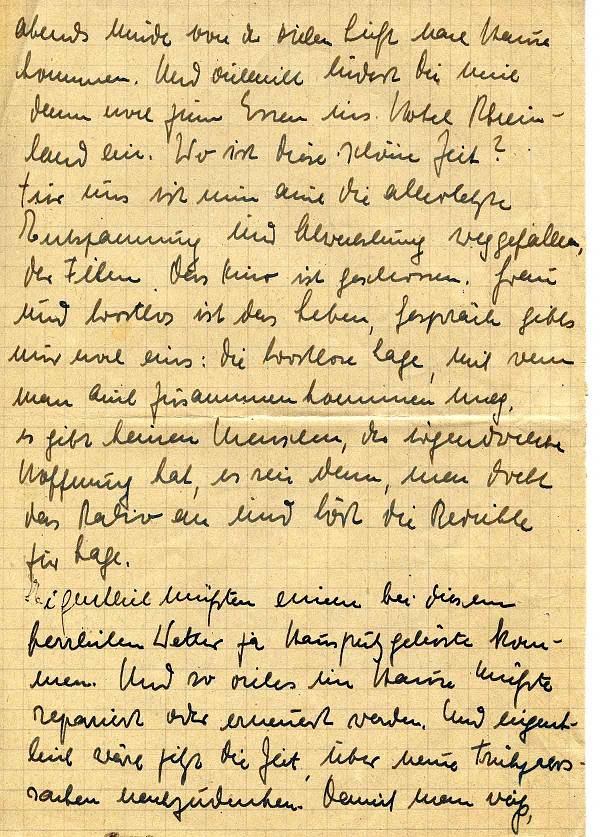 abends müde von der vielen Luft nach Hause
kommen. Und vielleicht lüdest Du mich
dann noch zum Essen ins Hotel Rhein-
land ein. Wo ist diese schöne Zeit?
Für uns ist nun auch die allerletzte
Entspannung und Abwechslung weggefallen,
der Film. Das Kino ist geschlossen. Grau
und trostlos ist das Leben, Gespräch gibts
nur noch eins: die trostlose Lage, mit wem
man auch zusammenkommen mag.
es gibt keinen Menschen, der irgendwelche
Hoffnung hat, es sei denn, man dreht
das Radio an und hört die Berichte
zur Lage.
Eigentlich müßten einem bei diesem
herrlichen Wetter ja Hausputzgelüste kom-
men. Und so vieles im Hause müßte
repariert oder erneuert werden. Und eigent-
lich wäre jetzt die Zeit, über neue Frühjahrs-
sachen nachzudenken. Damit man weiß,